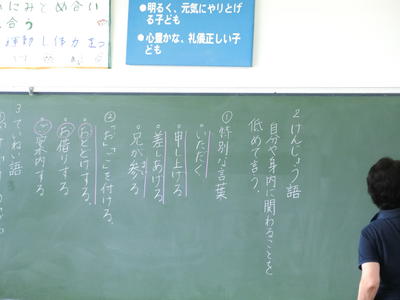 にみとめ合い
合う
運動し体力をつ
●明るく、元気にやりとげ
る子ども
●心豊かな、礼儀正しい子
ども
2けんじょう語
自分や身内に関わることを
低めて言う。
①特別な言葉
・いただく
・申し上げる
・差しあげる
・兄が参る
②「お」「ご」を付ける。
・おとどけする。
・お借りする
・ご案内する
3ていねい語